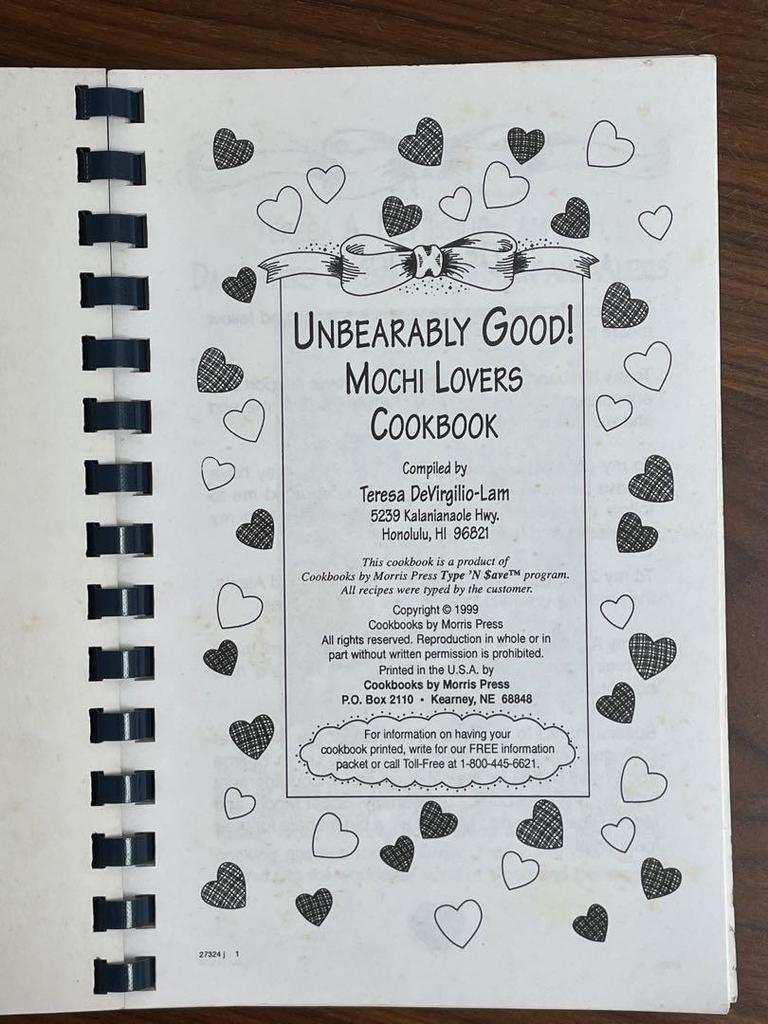 UNBEARABLY GOOD!
MOCHI LOVERS
COOKBOOK
Compiled by
Teresa DeVirgilio-Lam
5239 Kalanianaole Hwy.
Honolulu, HI 96821
This cookbook is a product of
Cookbooks by Morris Press Type 'N $ave™ program.
All recipes were typed by the customer.
Copyright © 1999
Cookbooks by Morris Press
All rights reserved. Reproduction in whole or in
part without written permission is prohibited.
Printed in the U.S.A. by
Cookbooks by Morris Press
P.O. Box 2110 • Kearney, NE 68848
For information on having your
cookbook printed, write for our FREE information
packet or call Toll-Free at 1-800-445-6621.
27324 j 1